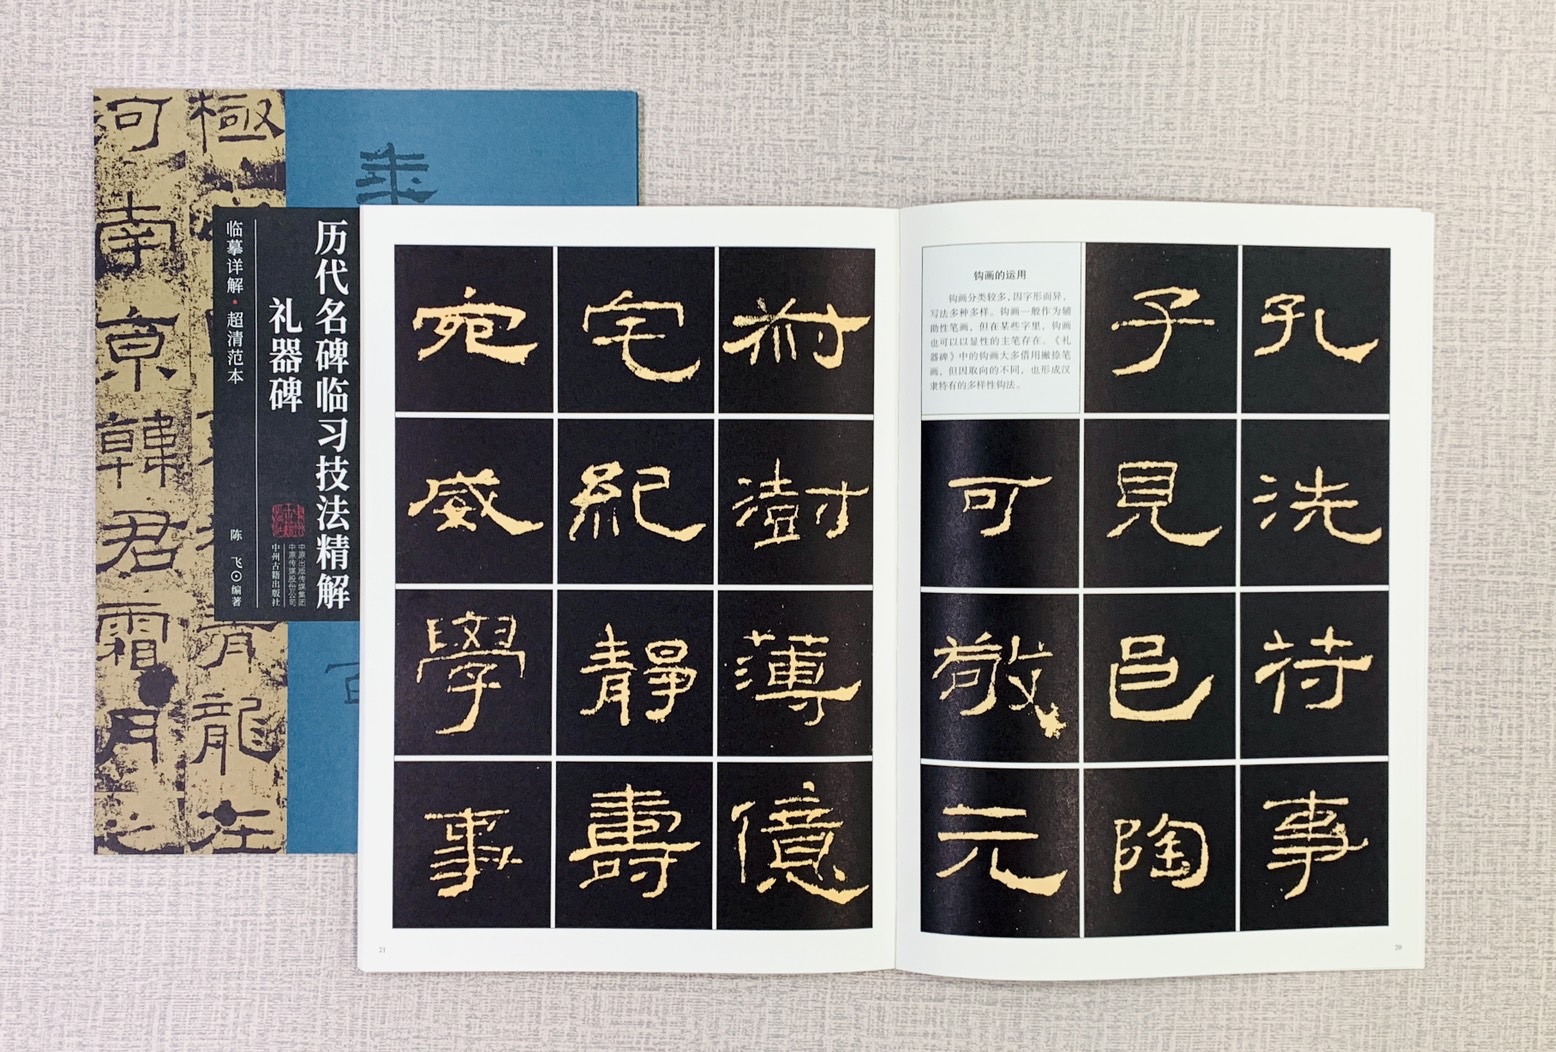 历代名碑临习技法精解
礼器碑
临摹详解·超清范本
陈 飞⊙编著
中原出版传媒集团
中原传媒股份公司
中州古籍出版社
河南京韓君霜月之
極
青龍在
钩画的运用
钩画分类较多，因字形而异，
写法多种多样。钩画一般作为辅
助性笔画，但在某些字里，钩画
也可以以显性的主笔存在。《礼
器碑》中的钩画大多借用撇捺笔
画，但因取向的不同，也形成汉
隶特有的多样性钩法。
孔洗待事
子見邑陶
可敬元
術澍薄億
宅紀靜壽
宛威學事
20
21